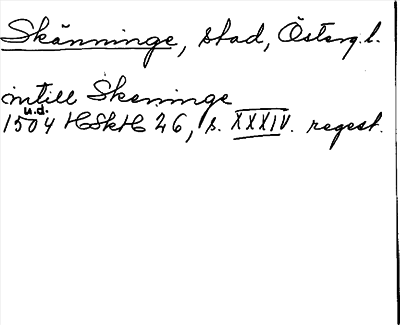 Skänninge, stad, Österg.l.
intill Skeninge
u.d.
1504 HSkH 26, s. XXXIV. regest.